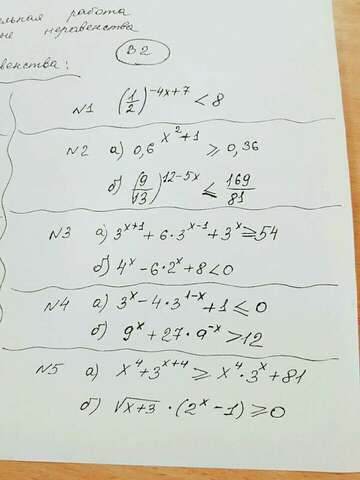 льная работа
ные неравенства
В 2
венства:
N1 (1/2)^(-4x+7) < 8
N2 а) 0,6^(x²+1) ≥ 0,36
б) (9/13)^(12-5x) ≤ 169/81
N3 а) 3^(x+1) + 6·3^(x-1) + 3^x ≥ 54
б) 4^x - 6·2^x + 8 < 0
N4 а) 3^x - 4·3^(1-x) + 1 ≤ 0
б) 9^x + 27·9^(-x) > 12
N5 а) x⁴ + 3^(x+4) ≥ x⁴·3^x + 81
б) √(x+3)·(2^x - 1) ≥ 0